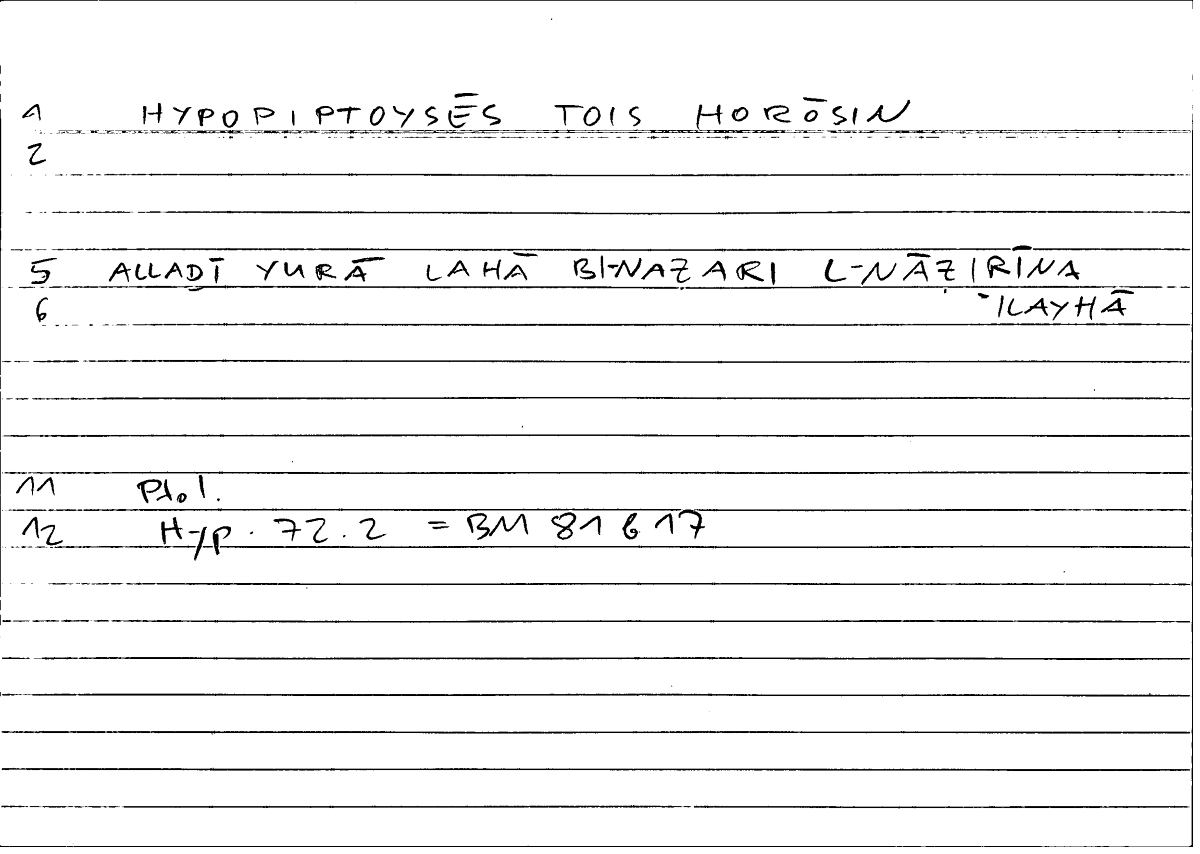 1 HYPOPIPTOYSĒS TOIS HORŌSIN
2
5 ALLAḎĪ YURĀ LAHĀ BI-NAẒARI L-NĀẒIRĪNA
6 ʾILAYHĀ
11 Ptol.
12 Hyp. 72.2 = BM 81617